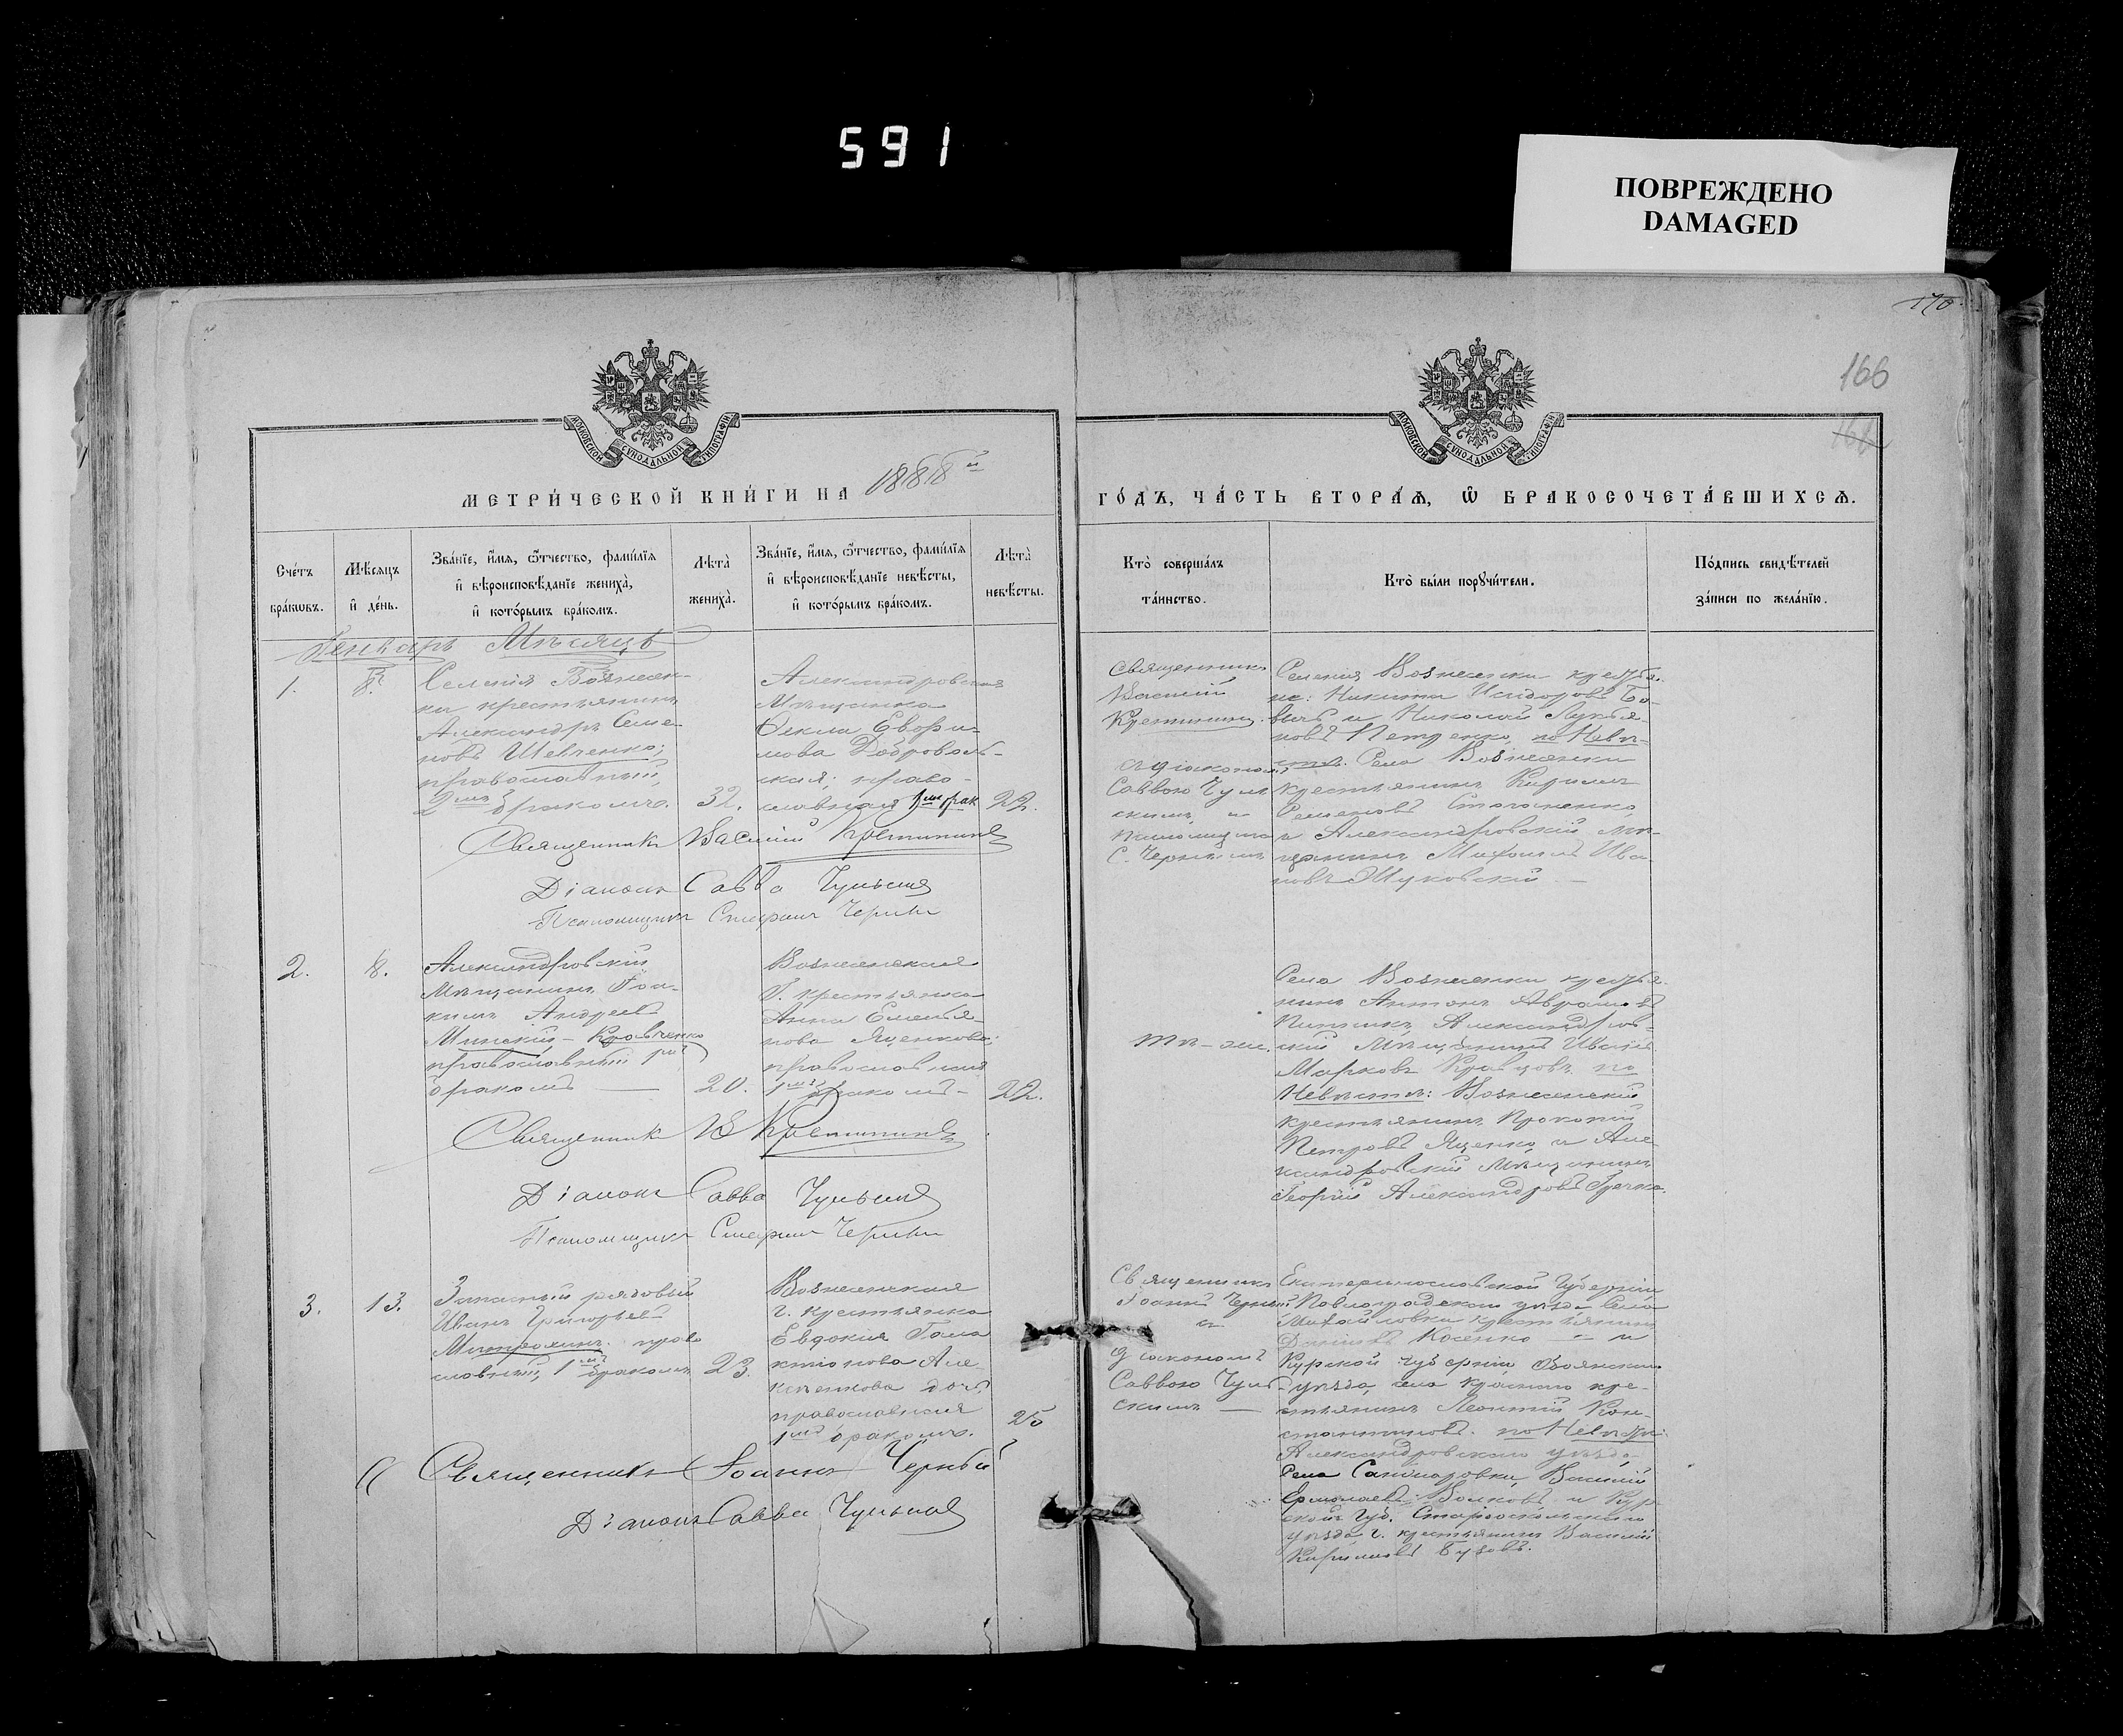 591
ПОВРЕЖДЕНО
DAMAGED
170
166
МОСКОВСКОЙ СѴНОДАЛЬНОЙ ТИПОГРАФІИ
МОСКОВСКОЙ СѴНОДАЛЬНОЙ ТИПОГРАФІИ
МЕТРИ́ЧЕСКОЙ КНИ́ГИ НА 1888й
ГО́ДЪ, ЧА́СТЬ ВТОРА́Ѧ, Ѿ БРАКОСОЧЕТА́ВШИХСѦ.
Сче́тъ
бра́кѡвъ.
Мѣ́сяцъ
и҆ де́нь.
Зва́нїе, и҆́мя, ѻ҆́тчество, фами́лїя
и҆ вѣроисповѣ́данїе жениха̀,
и҆ кото́рымъ бра́комъ.
Лѣта̀
жениха̀.
Зва́нїе, и҆́мя, ѻ҆́тчество, фами́лїя
и҆ вѣроисповѣ́данїе невѣ́сты,
и҆ кото́рымъ бра́комъ.
Лѣта̀
невѣ́сты.
Кто̀ соверша́лъ
та́инство.
Кто̀ бы́ли порꙋчи́тели.
По́дпись свидѣ́телей
за́писи по жела́нїю.
Генварь Мѣсяцъ
1.
8.
Селенія Вознесен-
ки крестьянинъ
Александръ Семе-
новъ Шевченко;
православный,
2мъ бракомъ.
32.
Александровская
Мѣщанка
Ѳекла Евфи-
мова Доброволь-
ская; право-
славная 1мъ брак
22.
Священникъ
Василій
Крестининъ.
съ діакономъ
Саввою Чуль
скимъ и
псаломщико
С. Чернымъ
Селенія Вознесенки крестья-
не: Никита Исидоровъ Бо-
вычъ и Николай Лукья-
новъ Петренко, по Невѣ-
стѣ. Села Вознесенки
крестьянинъ Кирилъ
Семеновъ
и Александровскій мѣ-
щанинъ Михаилъ Ива-
новъ Жуковскій
Священникъ Василій Крестининъ
Діаконъ Савва Чульскій
Псаломщикъ Стефанъ Черный
2.
8.
Александровскій
Мѣщанинъ Іоа-
кимъ Андреевъ
Минскій-Кравченко
православный 1мъ
бракомъ
20.
Вознесенская
Г. крестьянка
Анна Емелья-
нова Яценкова;
православная
1мъ бракомъ
22.
тѣ-же.
Села Вознесенки крестья-
нинъ Антонъ Аврамовъ
Александров-
скій Мѣщанинъ Иванъ
Марковъ Кравцовъ по
Невѣстѣ: Вознесенскій
крестьянинъ Прокопій
Петровъ Яценко и Але
ксандровскій Мѣщанинъ
Георгій Александровъ Гречка.
Священникъ В Крестининъ
Діаконъ Савва Чульскій
Псаломщикъ Стефанъ Черный
3.
13.
Запасный рядовый
Иванъ Григорьевъ
Митрохинъ право
славный, 1мъ бракомъ
23.
Вознесенская
г. крестьянка
Евдокія Гала
ктіонова Але-
ксѣенкова дочь
православная
1мъ бракомъ.
25
Священникъ
Іоаннъ Черный
съ
діакономъ
Саввою Чуль-
скимъ
Екатеринославской Губерніи
Павлоградскаго уѣзда Села
Михайловки крестьянинъ
Даніилъ Косенко и
Курской губерніи Обоянскаго
уѣзда, села Краснаго кре-
стьянинъ Леонтій Кон-
стантиновъ. по Невѣстѣ:
Александровскаго уѣзда
Села Василій
Ермолаевъ Волковъ и Кур
ской Губ. Старооскольскаго
уѣзда г. крестьянинъ Василій
Кириловъ Бузовъ.
Священникъ Іоаннъ Черный
Діаконъ Савва Чульскій